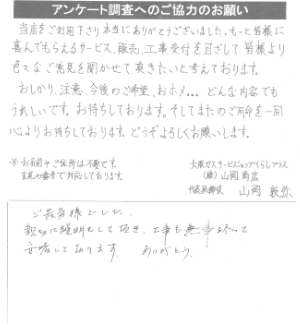 アンケート調査へのご協力のお願い
当店をご利用下さり本当にありがとうございました。もっと皆様に
喜んでもらえるサービス、販売、工事受付を目ざして皆様より
色々なご意見を聞かせて頂きたいと考えております。
おしかり、注意、今後のご希望、おホメ… どんな内容でも
うれしいです。お待ちしております。そしてまたのご用命を一同
心よりお待ちしております。どうぞよろしくお願いします。
※お名前やご住所は不要です。
大阪ガスサービスショップくらしプラス
(株)山岡商店
代表取締役 山岡
ご苦労様でした。
親切に説明もして頂き、工事も無事終って
安堵しております ありがとう。